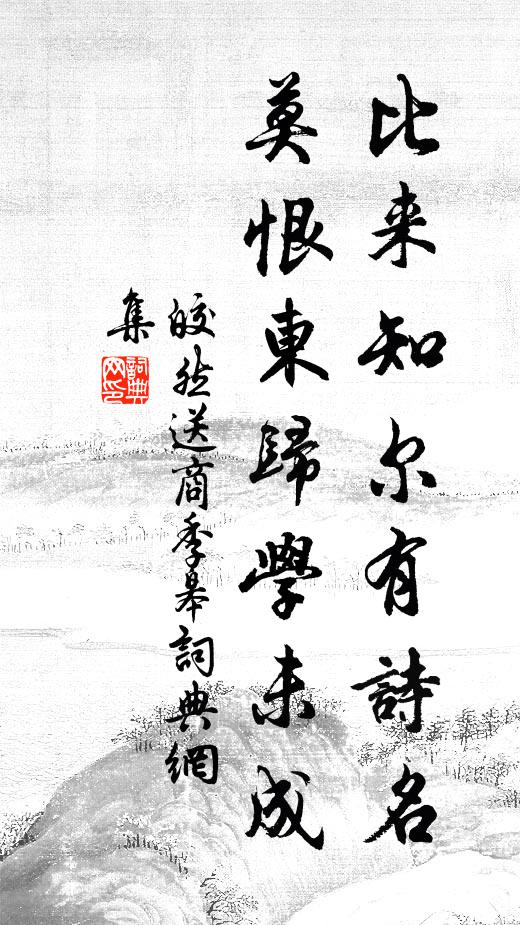 比来知尔有詩名
莫恨東歸學未成
皎然送商季皋詞典網
集
詞典
网印